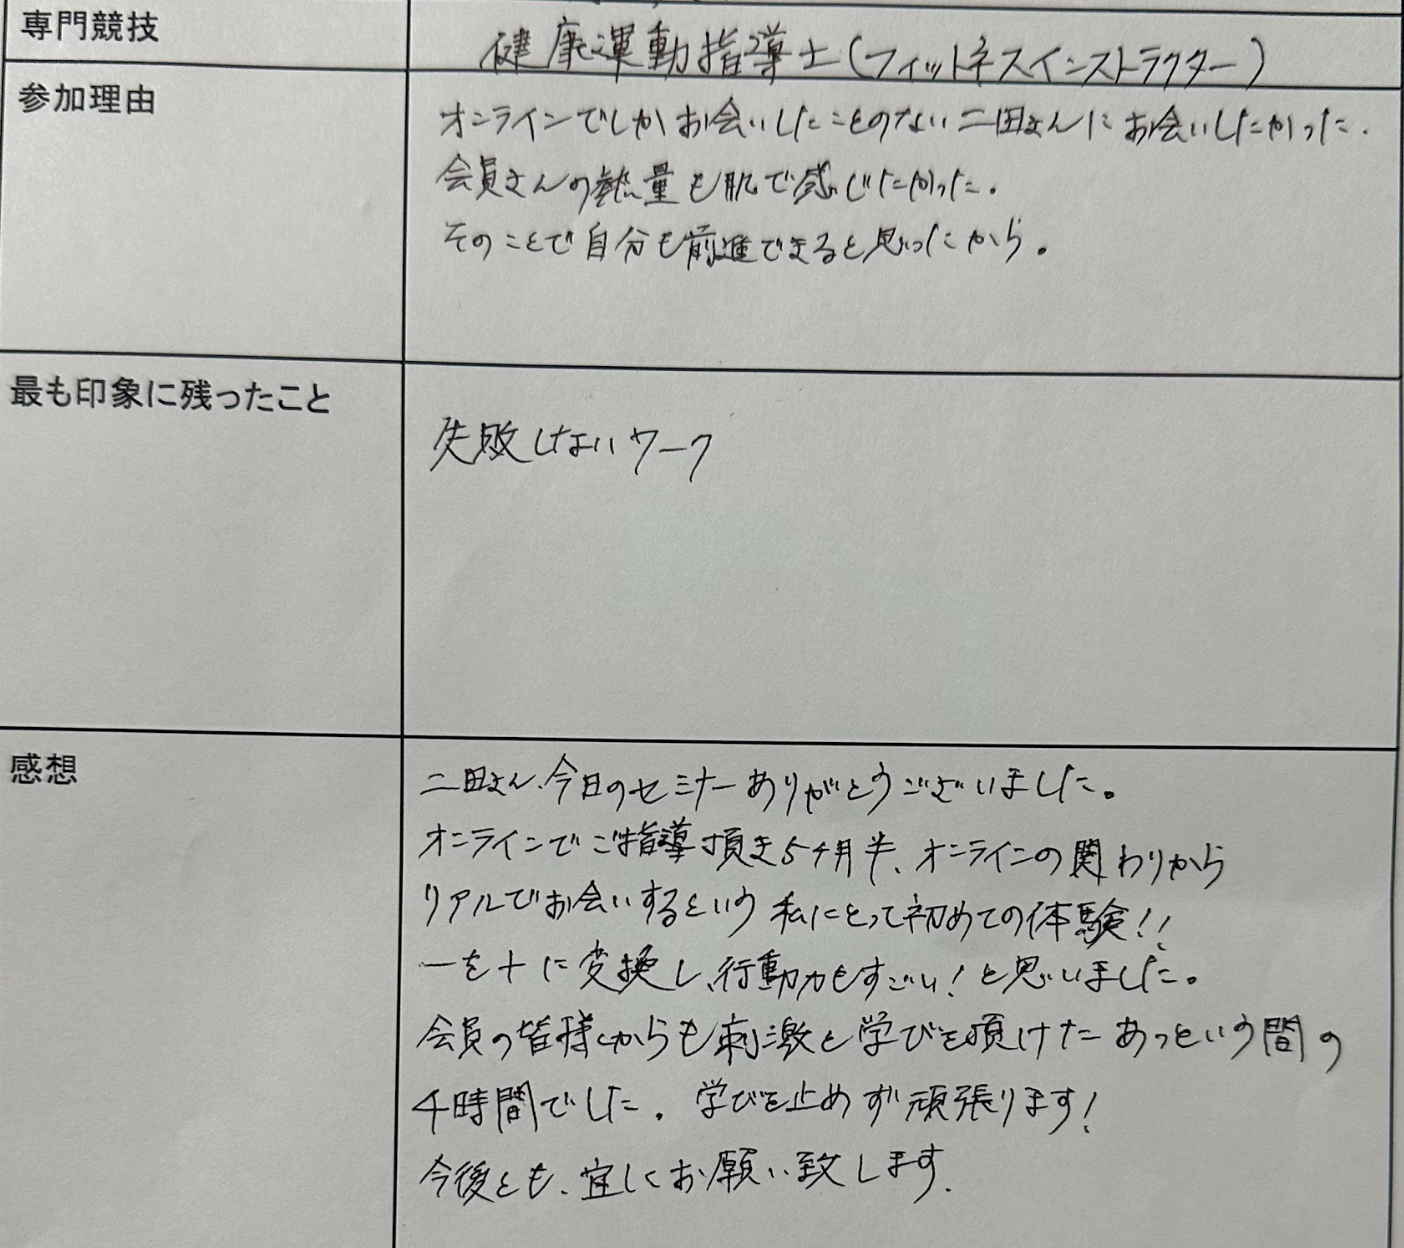 専門競技
健康運動指導士(フィットネスインストラクター)
参加理由
オンラインでしかお会いしたことのない二田さんにお会いしたかった.
会員さんの熱量も肌で感じたかった.
そのことで自分も前進できると思ったから。
最も印象に残ったこと
失敗しないワーク
感想
二田さん、今日のセミナーありがとうございました。
オンラインでご指導頂き5ヶ月半、オンラインの関わりから
リアルでお会いするという私にとって初めての体験!!
一を十に変換し、行動力もすごい!と思いました。
会員の皆様からも刺激と学びを頂けたあっという間の
4時間でした。学びを止めず頑張ります!
今後とも、宜しくお願い致します.